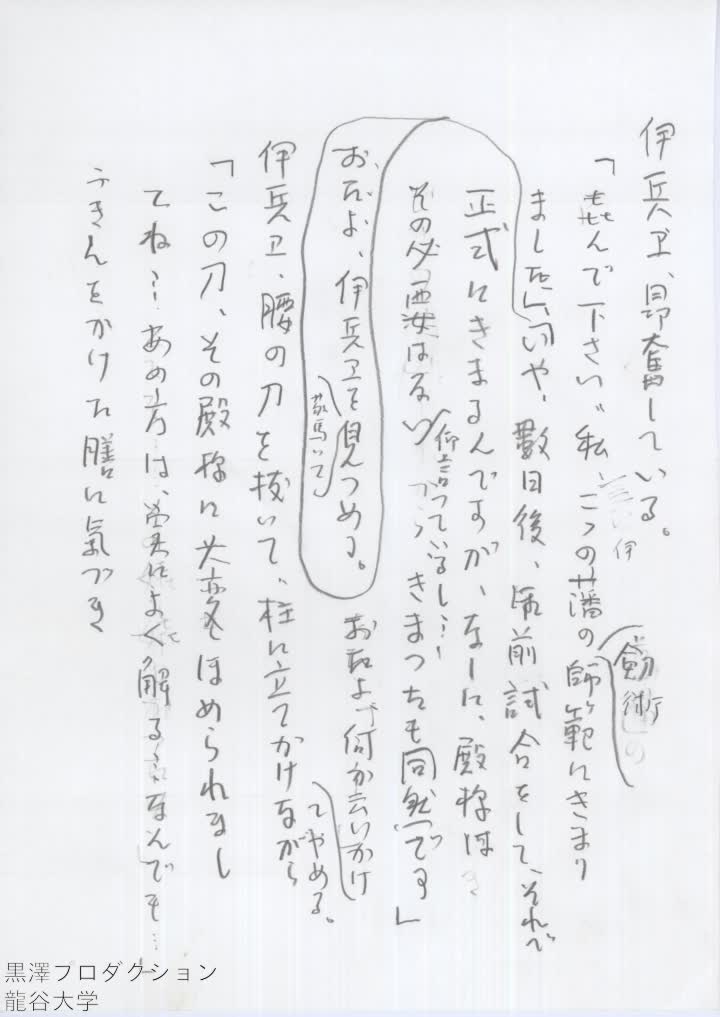 伊兵ヱ、昂奮している。
「㐂んで下さい、私、この藩の剣術師範にきまり
ました」「いや、數日後、御前試合をして、それで
正式にきまるんですが、なーに、殿様は
その必要はない
仰言っているし…きまつたも同然です」
おたよ、伊兵ヱを見つめる。
驚いて
おたよ、何か云いかけてやめる。
伊兵ヱ、腰の刀を抜いて、柱に立てかけながら
「この刀、その殿様に大変ほめられまし
てね…あの方は、実によく解る…なんでも…」
ふきんをかけた膳に氣づき
黒澤プロダクション
龍谷大学